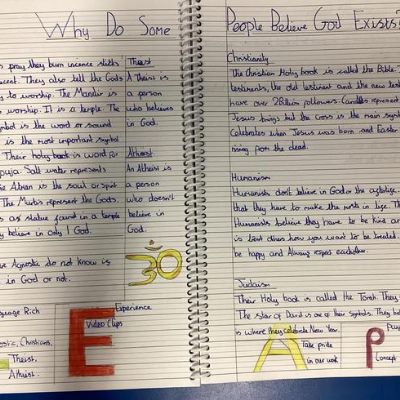 Why Do Some People Believe God Exists?
pray they burn incense sticks
They also tell the Gods
to worship. The Mandir is
worship. It is a temple. The
symbol is the word or sound
is the most important symbol
Their holy book is word for
puja. Salt water represents
the Atman is the soul or spirit
The Murtis represent the Gods.
statue found in a temple
believe in only 1 God.
Agnostic do not know is
in God or not.
Theist
A Theist is
a person
who believes
in God.
Atheist
An Atheist is
a person
who doesn't
believe in
God.
ॐ
Language Rich
Christians,
Theist,
Atheist.
E
Experience
Video Clips
Christianity
The Christian Holy book is called the Bible.
testiments, the old testiment and the new
have over 2 Billion followers. Candles represent
Jesus brings but the cross is the main
Celebrates when Jesus was born and Easter
rising from the dead.
Humanism
Humanists don't believe in God or the
that they have to make the most in life. The
Humanists believe they have to be kind
is treat others how you want to be treated.
be happy and Always
Judaism
Their Holy book is called the Torah. They
The star of David is one of their symbols. They
is where they celebrate New Year.
A
Take pride
in our work
P
Concept